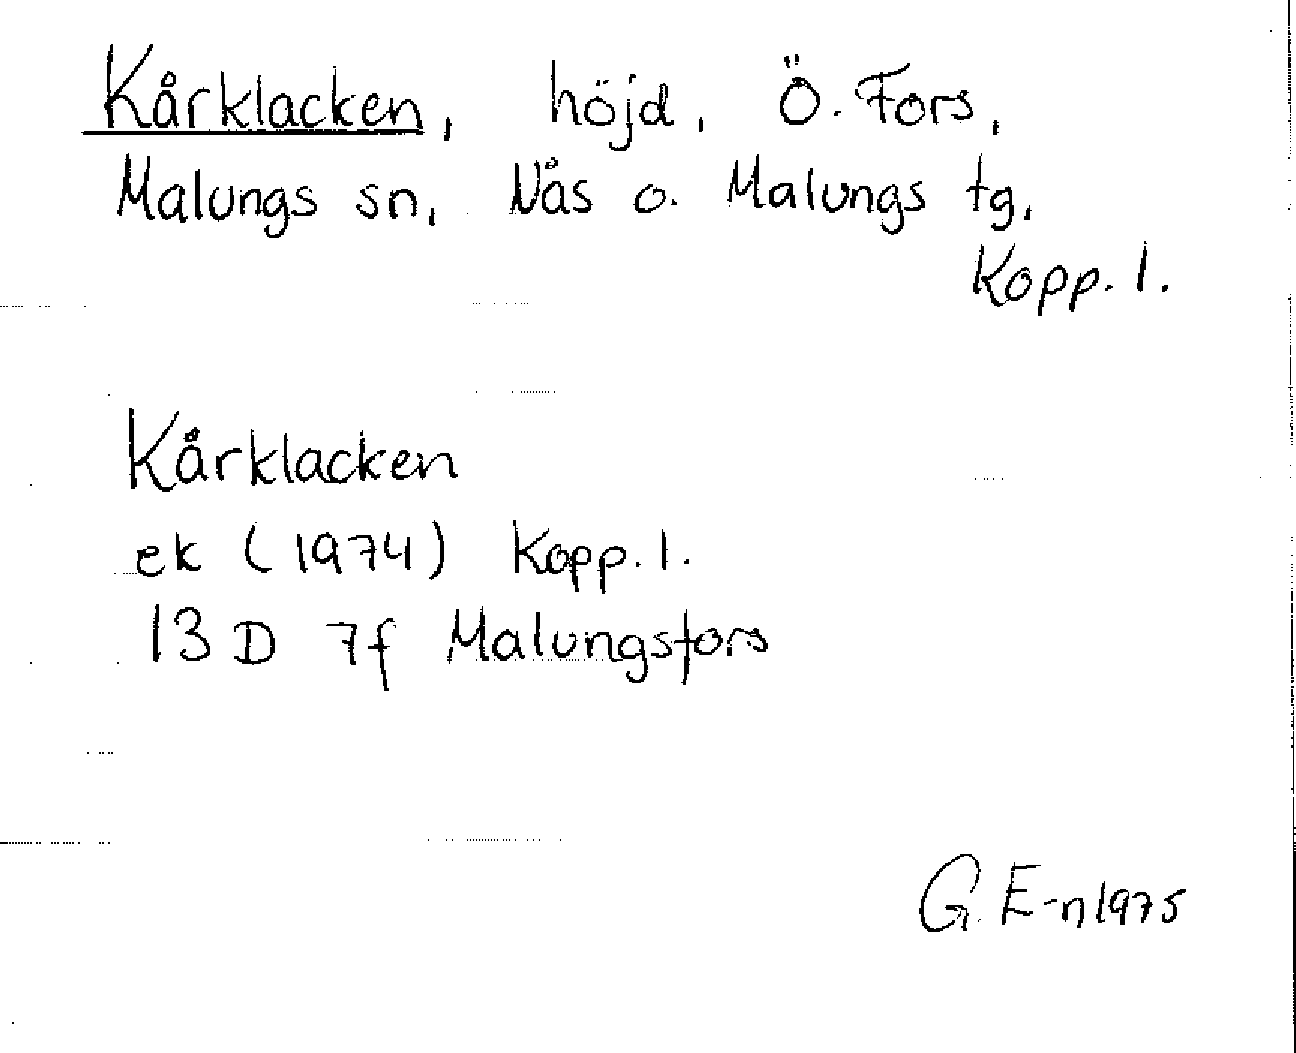 Kårklacken, höjd, Ö. Fors,
Malungs sn, Nås o. Malungs tg,
Kopp. l.
Kårklacken
ek (1974) Kopp. l.
13 D 7f Malungsfors
G. E-n 1975